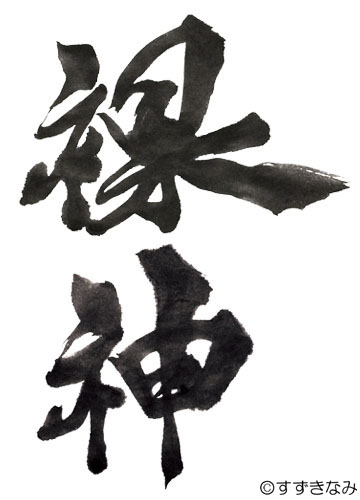 裸
神
©すずきなみ